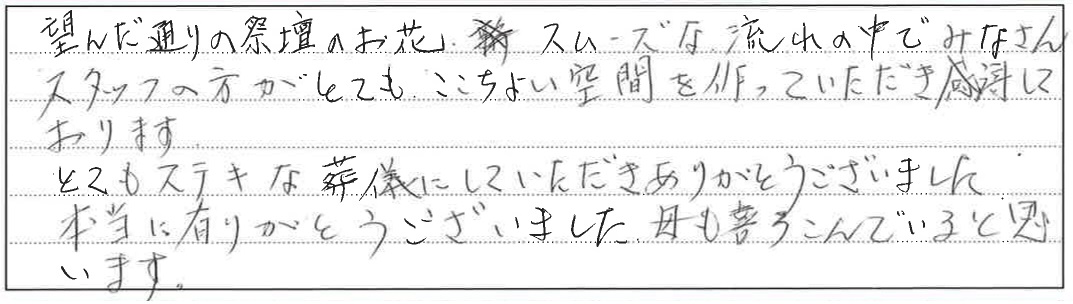 望んだ通りの祭壇のお花、スムーズな流れの中でみなさん
スタッフの方がとても、ここちよい空間を作っていただき感謝して
おります
とてもステキな葬儀にしていただきありがとうございました
本当に有りがとうございました。母も喜ろこんでいると思
います。